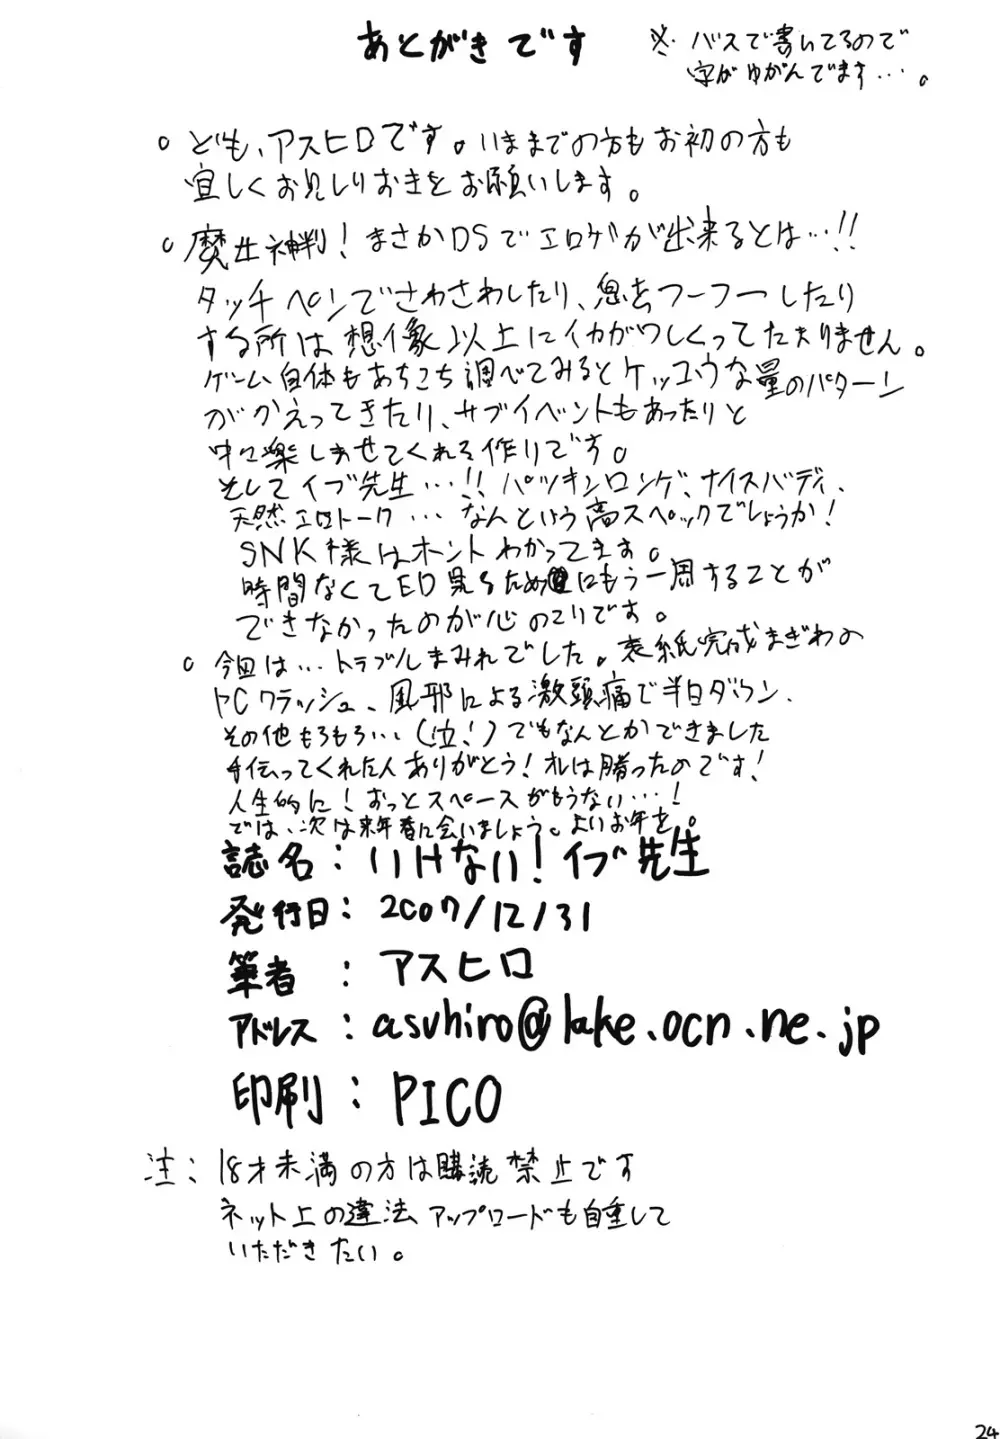 あとがきです
※バスで書いてるので
字がゆがんでます…。
○ども、アスヒロです。いままでの方もお初の方も
宜しくお見しりおきをお願いします。
○魔女神判!まさかDSでエロゲが出来るとは…!!
タッチペンでさわさわしたり、息をフーフーしたり
する所は想像以上にイカがわしくってたまりません。
ゲーム自体もあちこち調べてみるとケッコウな量のパターン
がかえってきたり、サブイベントもあったりと
中々楽しませてくれる作りです。
そしてイブ先生…!!パツキンロンゲ、ナイスバディ、
天然エロトーク…なんという高スペックでしょうか!
SNK様はホントわかってます。
時間なくてED見るためにもう一周することが
できなかったのが心のこりです。
○今回は…トラブルまみれでした。表紙完成まぎわの
PCクラッシュ、風邪による激頭痛で半日ダウン、
その他もろもろ…(泣!)でもなんとかできました
手伝ってくれた人ありがとう!オレは勝ったのです!
人生的に!おっとスペースがもうない…!
では、次は来年春に会いましょう。よいお年を。
誌名:いけない!イブ先生
発行日:2007/12/31
筆者:アスヒロ
アドレス:asuhiro@lake.ocn.ne.jp
印刷:PICO
注:18才未満の方は購読禁止です
ネット上の違法アップロードも自重して
いただきたい。
24